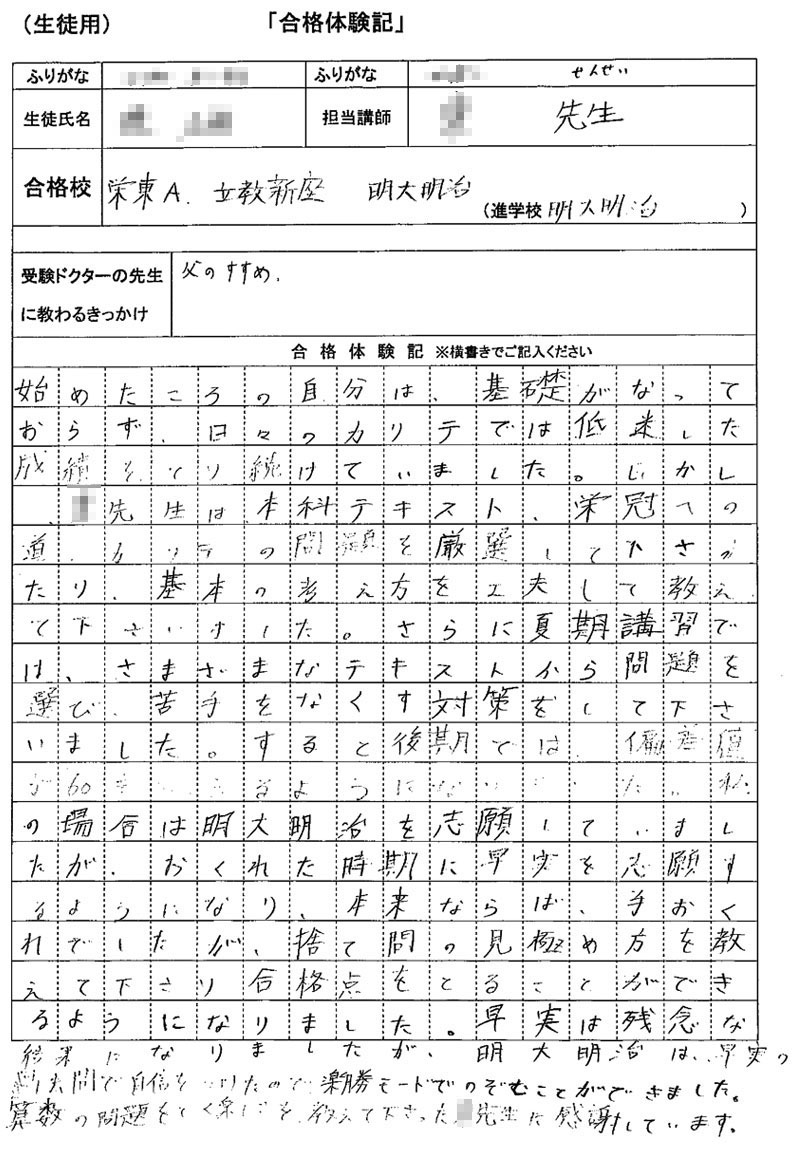 (生徒用)　「合格体験記」
ふりがな　ふりがな　せんせい
生徒氏名　担当講師　先生
合格校　栄東A. 立教新座　明大明治
(進学校 明大明治　)
受験ドクターの先生に教わるきっかけ　父のすすめ.
合格体験記 ※横書きでご記入ください
始めたころの自分は、基礎がなって
おらず、日々のカリテでは低迷した
成績をとり続けていました。しかし
、先生は本科テキスト、栄冠への
道、カリテの問題を厳選して下さっ
たり、基本の考え方を工夫して教え
て下さいました。さらに夏期講習で
は、さまざまなテキストから問題を
選び、苦手をなくす対策をして下さ
いました。すると後期では、偏差値
が60をるようになた。私
の場合は明大明治を志願していまし
たが、おくれた時期に早実を志願す
るようになり、本来ならば、手おく
れでしたが、捨て問の見極め方を教
えて下さり合格点をとることができ
るようになりました。早実は残念な
結果になりましたが、明大明治は、早実の
過去問で自信をつけたので、楽勝モードでのぞむことができました。
算数の問題をとく楽しさを教えて下さった先生に感謝しています。